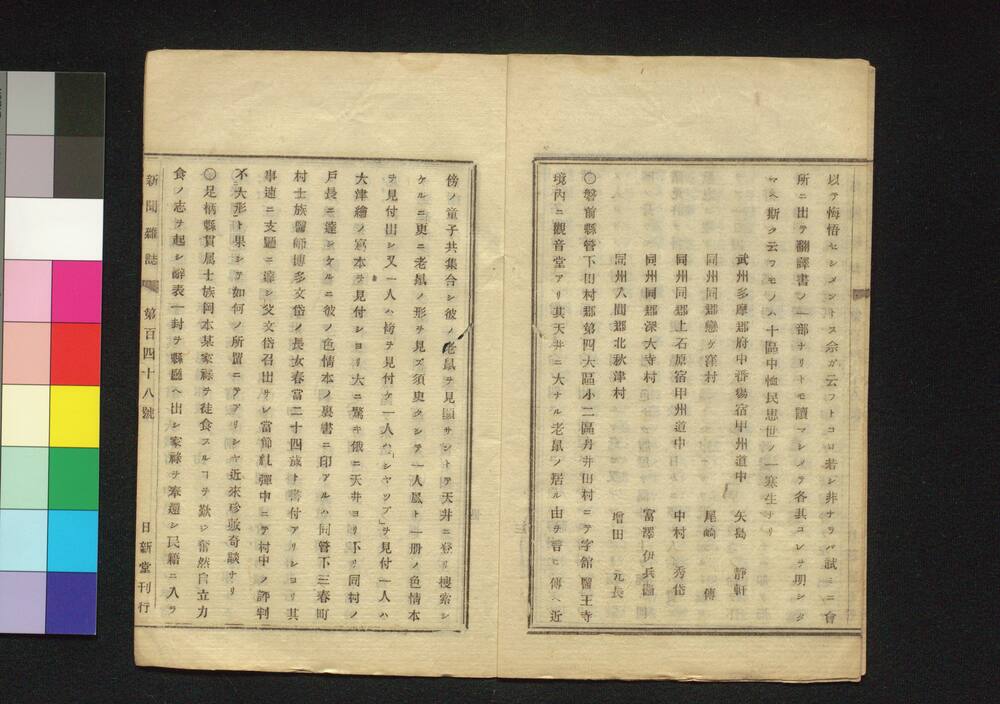 以テ悔悟セシメントス余ガ云フトコロ若シ非ナラバ試ミニ會
所ニ出テ翻譯書ノ一部ナリトモ讀マシメテ各其コレヲ明シタ
マヘ斯ク云フモノハ十區中恤民思世ノ一寒生ナリ
武州多摩郡府中番場宿甲州道中 矢島 靜軒
同州同郡戀ケ窪村 尾崎 傳
同州同郡上石原宿甲州道中 中村 秀岱
同州同郡深大寺村 富澤 伊兵衞
同州入間郡北秋津村 增田 元長
〇磐前縣管下田村郡第四大區小二區丹井田村ニテ字館醫王寺
境内ニ觀音堂アリ其天井ニ大ナル老鼠ノ居ル由ヲ言ヒ傳ヘ近
傍ノ童子共集合シ彼ノ老鼠ヲ見顯サントヲ天井ニ登リ搜索シ
ケルニ更ニ老鼠ノ形ヲ見ズ須臾クシテ一人風ト一册ノ色情本
ヲ見付出シ又一人ハ 見付ケ一人ハ「シヤツプ」ヲ見付一人ハ
大津繪ノ寫本ヲ見付シヨリ大ニ驚キ俄ニ天井ヨリ下リ同村ノ
戸長ニ達シケルニ彼ノ色情本ノ裏書ニ印アルハ同管下三春町
村士族醫師博多文岱ノ長女春當二十四歳ト書付アリシヨリ其
事速ニ支廳ニ達シ父文岱召出サレ當節糺彈中ニテ村中ノ評判
不大形ト果シテ如何ノ所置ニテアリシヤ近來珍敷奇談ナリ
〇足柄縣貫属士族岡本某家祿ヲ徒食スルコヲ歎ジ奮然自立力
食ノ志ヲ起シ辭表一封ヲ縣廳ヘ出シ家祿ヲ奉還シ民籍ニ入ラ
新聞雜誌 第百四十八號 日新堂刊行